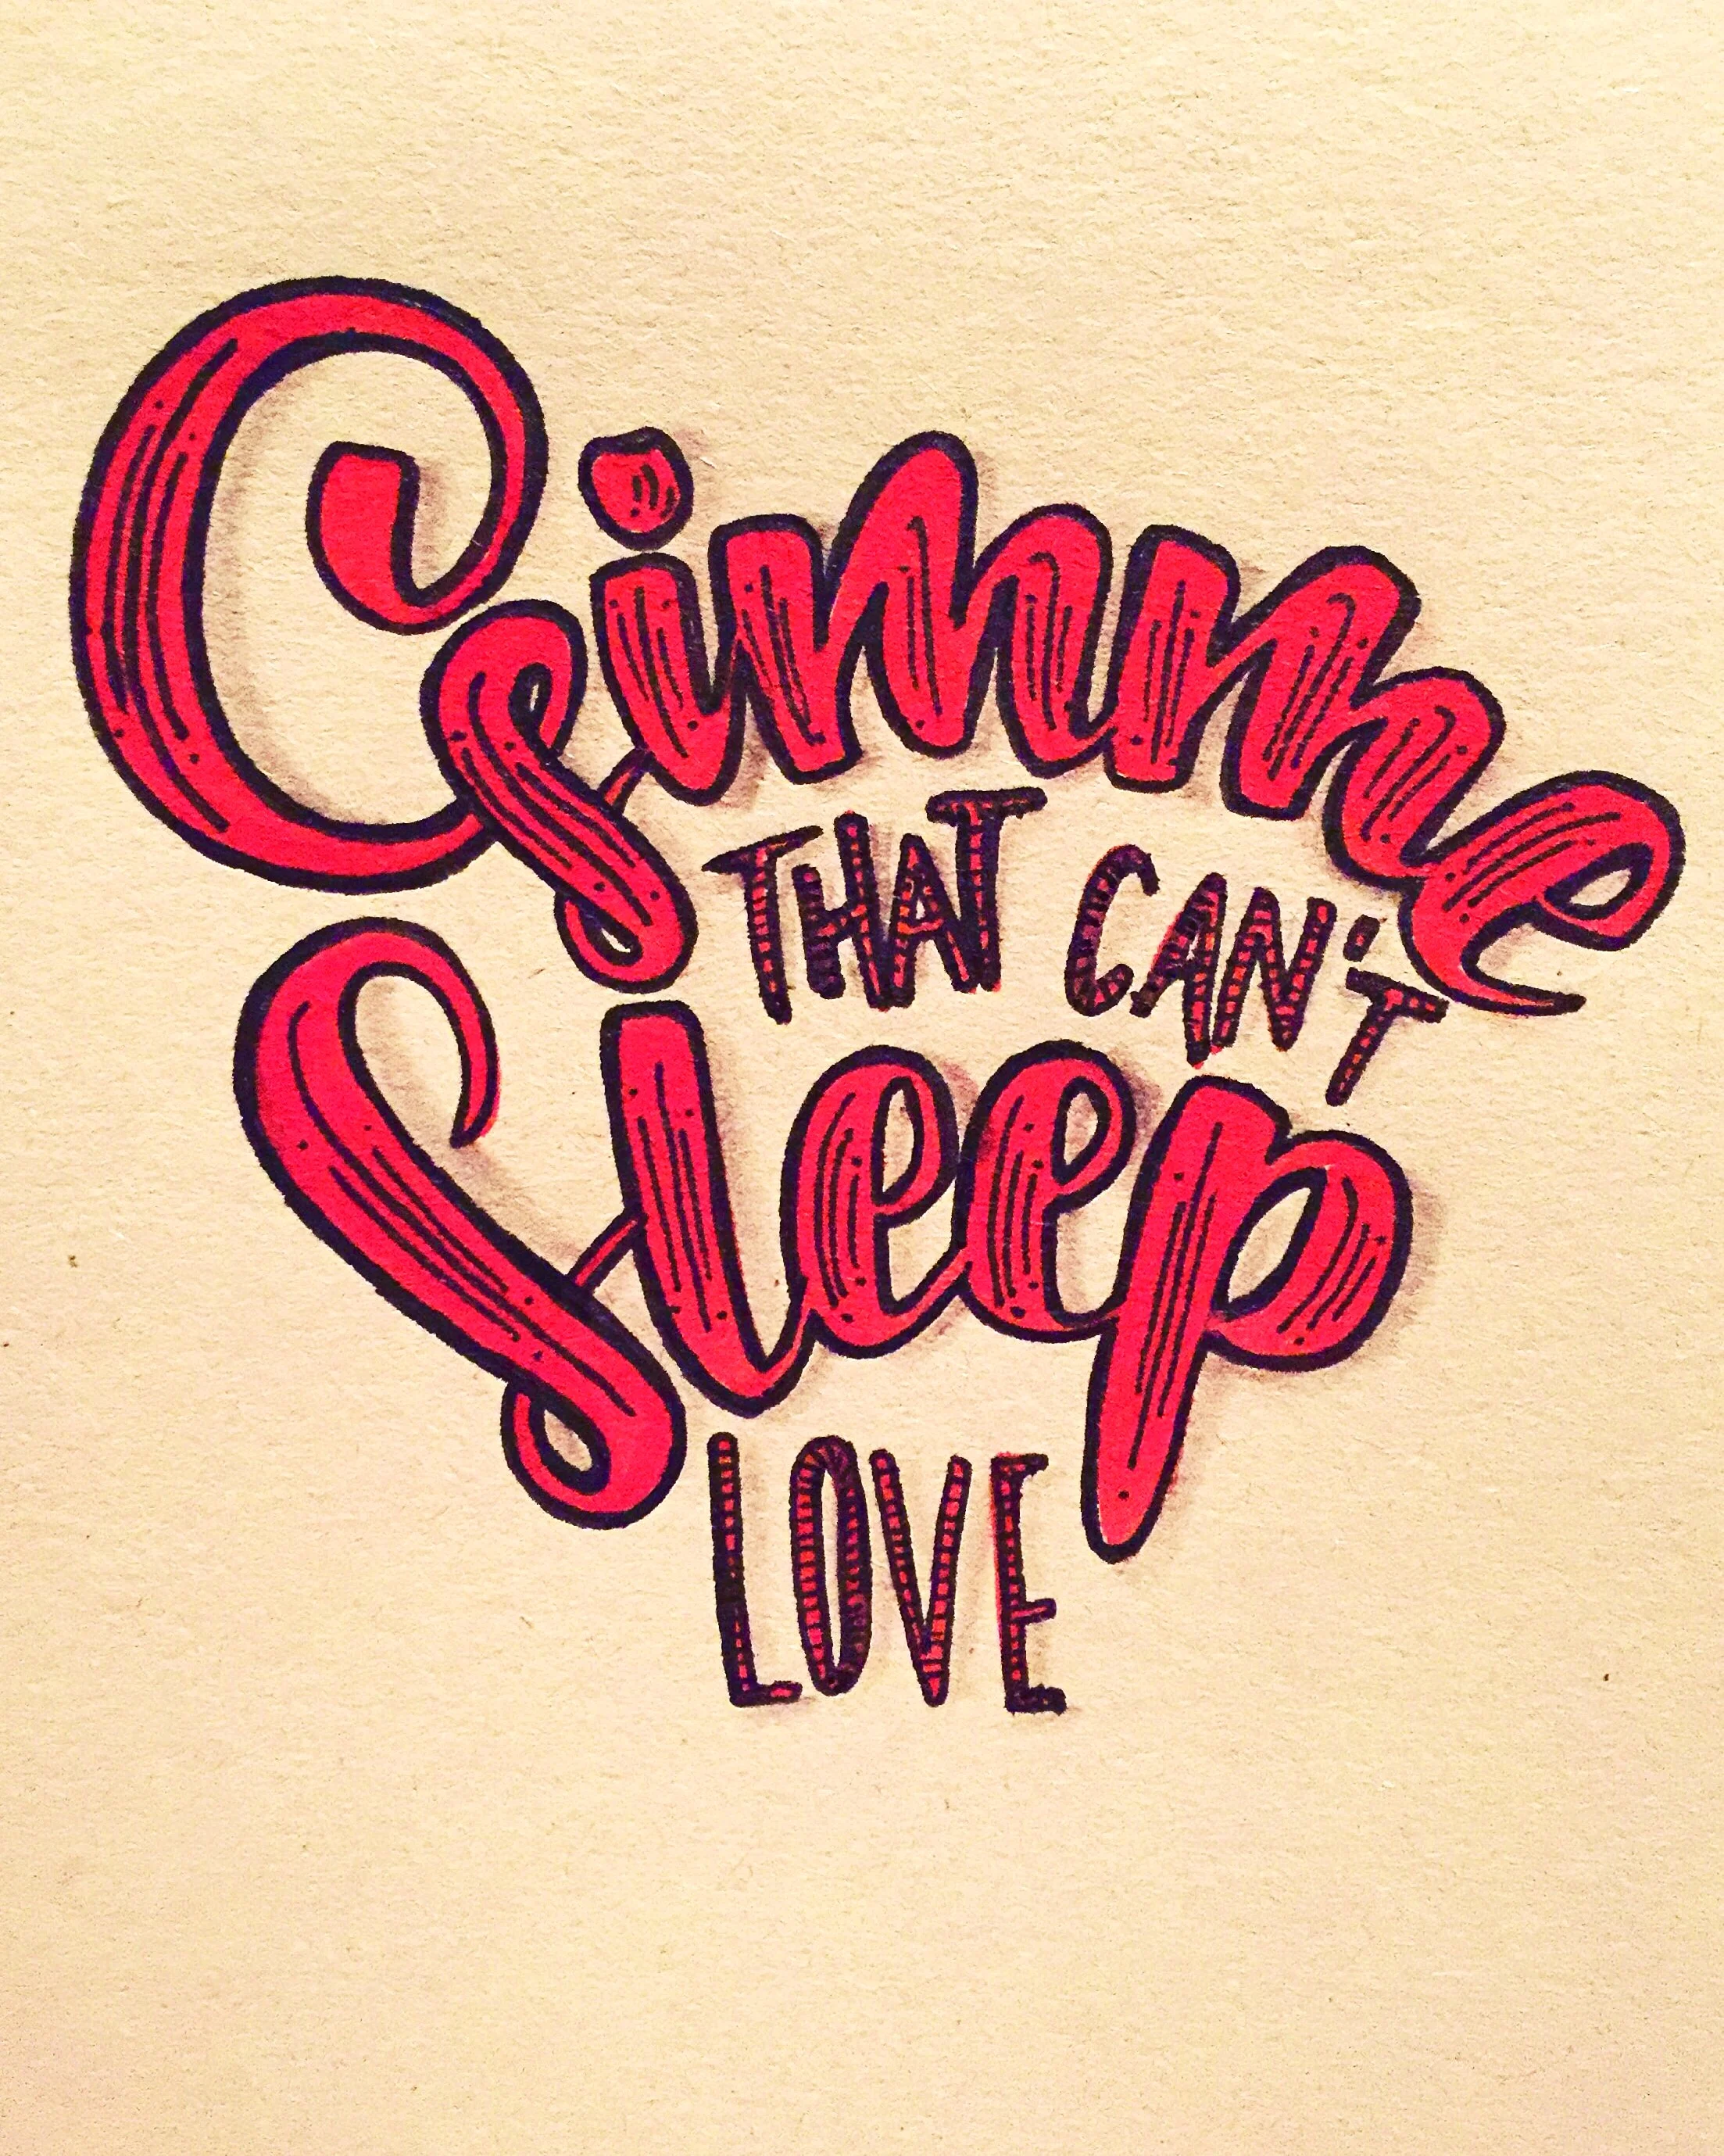 Gimme
THAT CAN'T
Sleep
LOVE